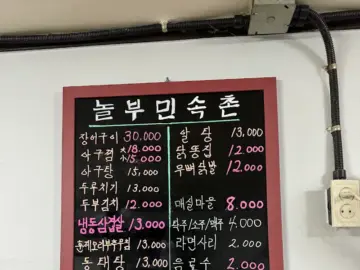 놀부민속촌
장어구이 30,000
아구찜 大18,000
小15,000
아구탕 15,000
두루치기 13,000
두부김치 12,000
냉동삼겹살 13,000
훈제오리부추무침 13,000
동태탕 13,000
알탕 13,000
닭똥집 12,000
무뼈닭발 12,000
매실마을 8,000
탁주/소주/맥주 4,000
라면사리 2,000
음료수 2,000